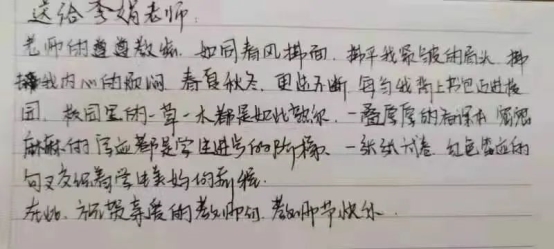 送给李娟老师:
老师的遵遵教诲,如同春风拂面,拂平我紧皱的眉头,拂
我内心的烦闷,春夏秋冬,更迭不断,每当我背上书包迈进校
园,校园里的一草一木都是如此,一叠厚厚的备课本,密密
麻麻的字迹都是学生进步的阶梯,一张张试卷,红色的
句又交织着学生美好的
在此,祝贺亲爱的教师们,教师节快乐.